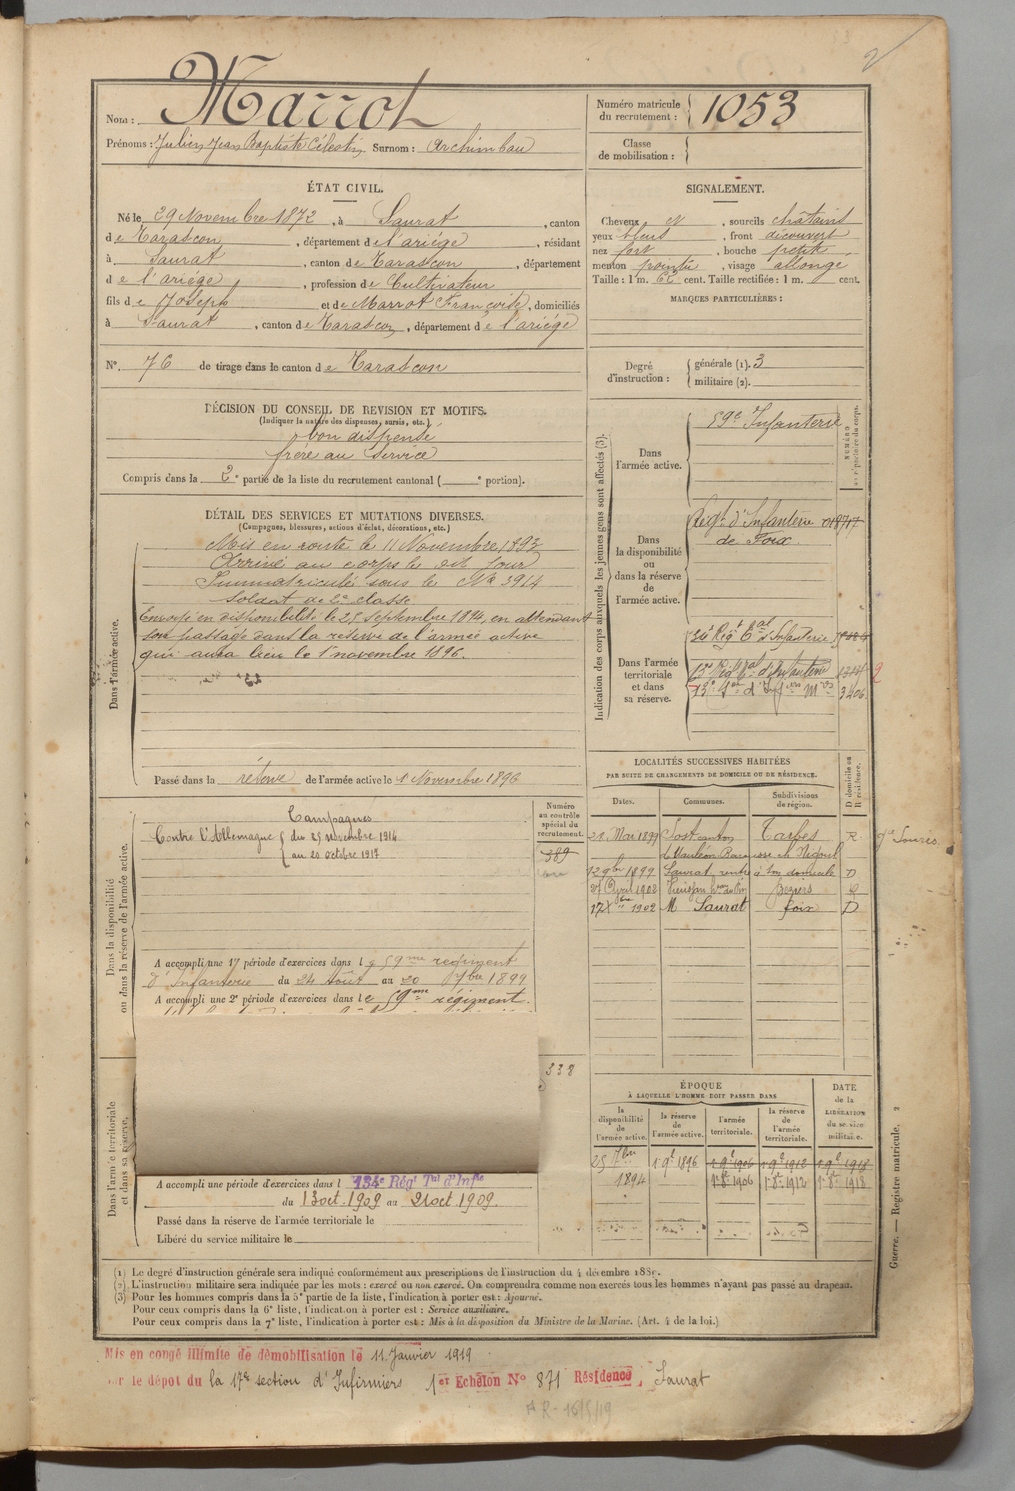 2
Nom : Marrot
Prénoms : Julien Jean Baptiste Célestin Surnom : Archimbau
Numéro matricule du recrutement : 1053
Classe de mobilisation :
ÉTAT CIVIL.
Né le 29 Novembre 1872, à Saurat, canton
de Tarascon, département de l'ariége, résidant
à Saurat, canton de Tarascon, département
de l'ariége, profession de Cultivateur
fils de Joseph et de Marrot Françoise, domiciliés
à Saurat, canton de Tarascon, département de l'ariége
N° 76 de tirage dans le canton de Tarascon
SIGNALEMENT.
Cheveux N, sourcils châtains
yeux bleus, front découvert
nez fort, bouche petite
menton pointu, visage allongé
Taille : 1 m. 62 cent. Taille rectifiée : 1 m. cent.
MARQUES PARTICULIÈRES :
Degré d'instruction : générale (1). 3
militaire (2).
DÉCISION DU CONSEIL DE REVISION ET MOTIFS.
(Indiquer la nature des dispenses, sursis, etc.)
bon dispensé
frère au service
Compris dans la 2e partie de la liste du recrutement cantonal ( e portion).
DÉTAIL DES SERVICES ET MUTATIONS DIVERSES.
(Campagnes, blessures, actions d'éclat, décorations, etc.)
Dans l'armée active.
Mis en route le 11 Novembre 1893
Arrivé au corps le dit jour
Immatriculé sous le No 3914
Soldat de 2e classe
Envoyé en disponibilité le 25 septembre 1894, en attendant
son passage dans la réserve de l'armée active
qui aura lieu le 1er novembre 1896.
Passé dans la réserve de l'armée active le 1 Novembre 1896
Indication des corps auxquels les jeunes gens sont affectés (3).
NUMÉRO au répertoire du corps.
Dans l'armée active.
59e Infanterie
Dans la disponibilité ou dans la réserve de l'armée active.
Régt d'Infanterie
de Foix
Dans l'armée territoriale et dans sa réserve.
134e Régt Eal d'Infanterie
3406
LOCALITÉS SUCCESSIVES HABITÉES
PAR SUITE DE CHANGEMENTS DE DOMICILE OU DE RÉSIDENCE.
Dates. Communes. Subdivisions de région. D domicile ou R résidence.
21 Mai 1899 Sost canton Tarbes R.
de Mauléon Barousse
1 9bre 1899 Saurat, rentré à son domicile D
27 Avril 1902 Béziers
17 Xbre 1902 M Saurat foix D
Dans la disponibilité ou dans la réserve de l'armée active.
Numéro au contrôle spécial du recrutement.
389
Campagnes
Contre l'Allemagne du 25 novembre 1914
au 20 octobre 1917
A accompli une 1re période d'exercices dans le 59me regiment
d'Infanterie du 24 Août au 20 7bre 1899
A accompli une 2e période d'exercices dans le 59me régiment
338
Dans l'armée territoriale et dans sa réserve.
A accompli une période d'exercices dans l 134e Régt Tal d'Infie
du 13 oct. 1909 au 21 oct 1909.
Passé dans la réserve de l'armée territoriale le
Libéré du service militaire le
ÉPOQUE
À LAQUELLE L'HOMME DOIT PASSER DANS
DATE de la LIBÉRATION du service militaire.
la disponibilité de l'armée active. la réserve de l'armée active. l'armée territoriale. la réserve de l'armée territoriale.
25 7bre 1894 1 9e 1896 1 9e 1906 1 9e 1912 1 9e 1918
1 8e 1906 1 8e 1912 1 8e 1918
Guerre. — Registre matricule. 2
(1) Le degré d'instruction générale sera indiqué conformément aux prescriptions de l'instruction du 4 décembre 1889.
(2) L'instruction militaire sera indiquée par les mots : exercé ou non exercé. On comprendra comme non exercés tous les hommes n'ayant pas passé au drapeau.
(3) Pour les hommes compris dans la 5e partie de la liste, l'indication à porter est : Ajourné.
Pour ceux compris dans la 6e liste, l'indication à porter est : Service auxiliaire.
Pour ceux compris dans la 7e liste, l'indication à porter est : Mis à la disposition du Ministre de la Marine. (Art. 4 de la loi.)
Mis en congé illimité de démobilisation le 11 Janvier 1919
par le dépôt du la 17e section d'Infirmiers 1er Echelon N° 871 Résidence Saurat